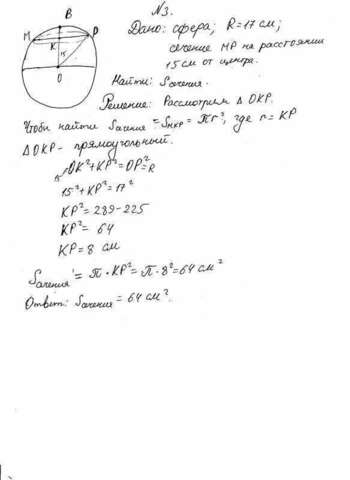 N3.
B
Дано: сфера; R=17 см;
сечение MP на расстоянии
15 см от центра.
M
P
K
15
O
Найти: Sсечения.
Решение: Рассмотрим Δ OKP.
Чтоби найти Sсечения = SMKP = πr², где r = KP
ΔOKP - прямоугольный.
OK²+KP²=OP²=R
15²+KP²=17²
KP²=289-225
KP²= 64
KP=8 см
Sсечения = π · KP² = π · 8² = 64 см²
Ответ: Sсечения = 64 см².